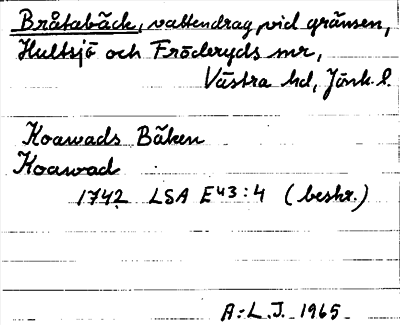 Bråtabäck, vattendrag, vid gränsen,
Hultsjö och Fröderyds snr,
Västra hd, Jönk. l.
Koawads Bäken
Koawad
1742 LSA E43:4 (beskr.)
A:L.J. 1965